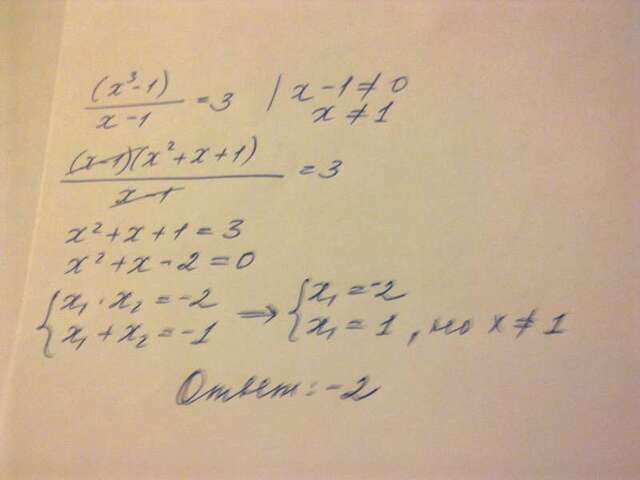 (x³-1)/(x-1) = 3 | x-1≠0
x≠1
(x-1)(x²+x+1)/(x-1) = 3
x²+x+1=3
x²+x-2=0
{x₁·x₂=-2 ⇒ {x₁=-2
{x₁+x₂=-1 {x₁=1, но x≠1
Ответ: -2